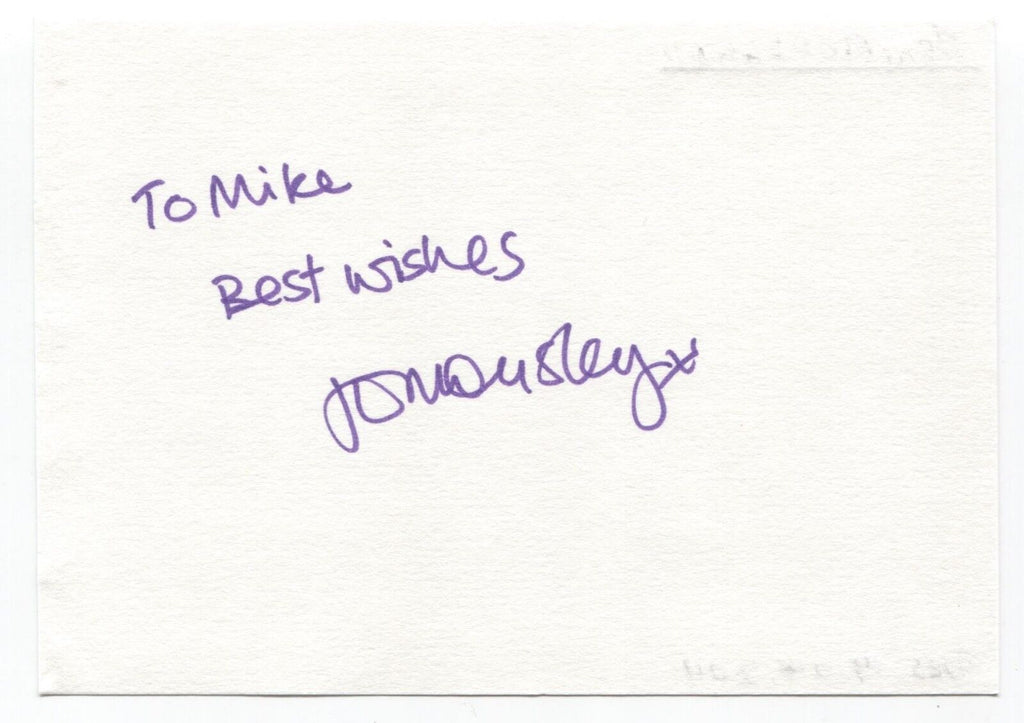 To Mike
Best wishes
Jo Mousley x